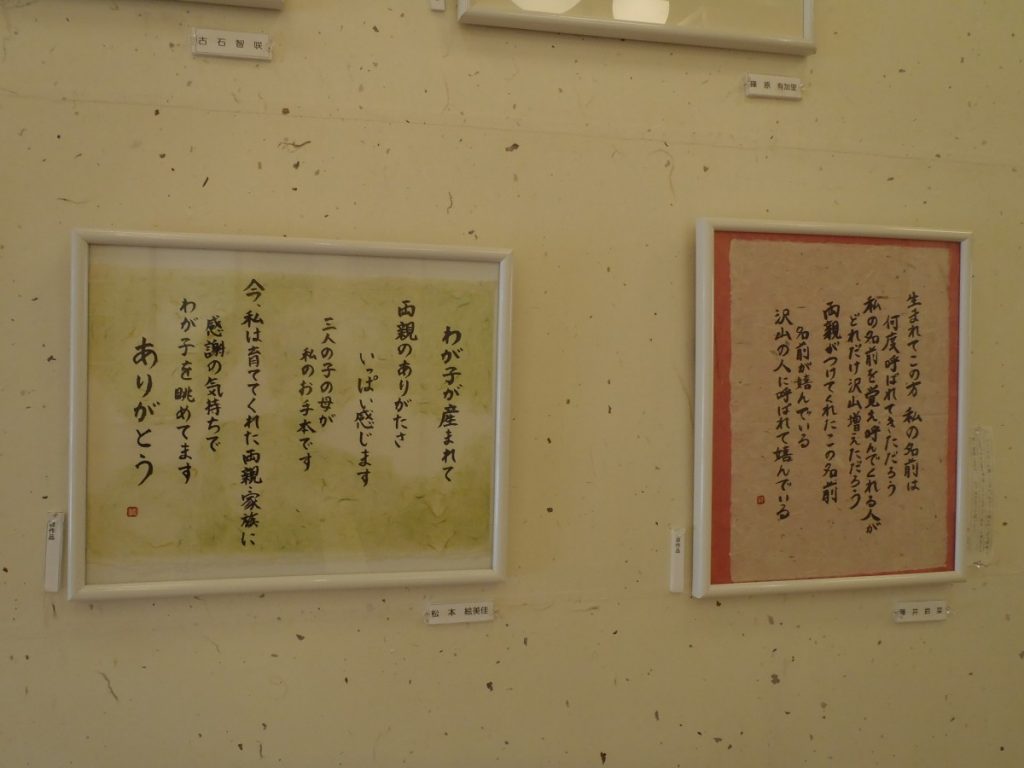 古石智咲
篠原 有加里
わが子が産まれて
両親のありがたさ
いっぱい感じます
三人の子の母が
私のお手本です
今、私は育ててくれた両親、家族に
感謝の気持ちで
わが子を眺めてます
ありがとう
松本 絵美佳
生まれてこの方 私の名前は
何度呼ばれてきただろう
私の名前を覚え呼んでくれる人が
どれだけ沢山、増えただろう
両親がつけてくれたこの名前
名前が嬉んでいる
沢山の人に呼ばれて嬉んでいる